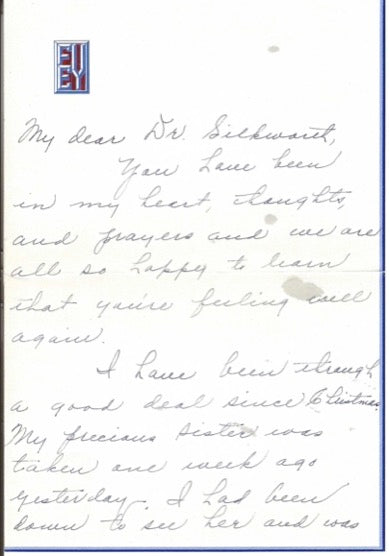 My dear Dr. Silkworth,
You have been
in my heart, thoughts,
and prayers and we are
all so happy to learn
that you're feeling well
again.
I have been through
a good deal since Christmas.
My precious sister was
taken one week ago
yesterday. I had been
down to see her and was